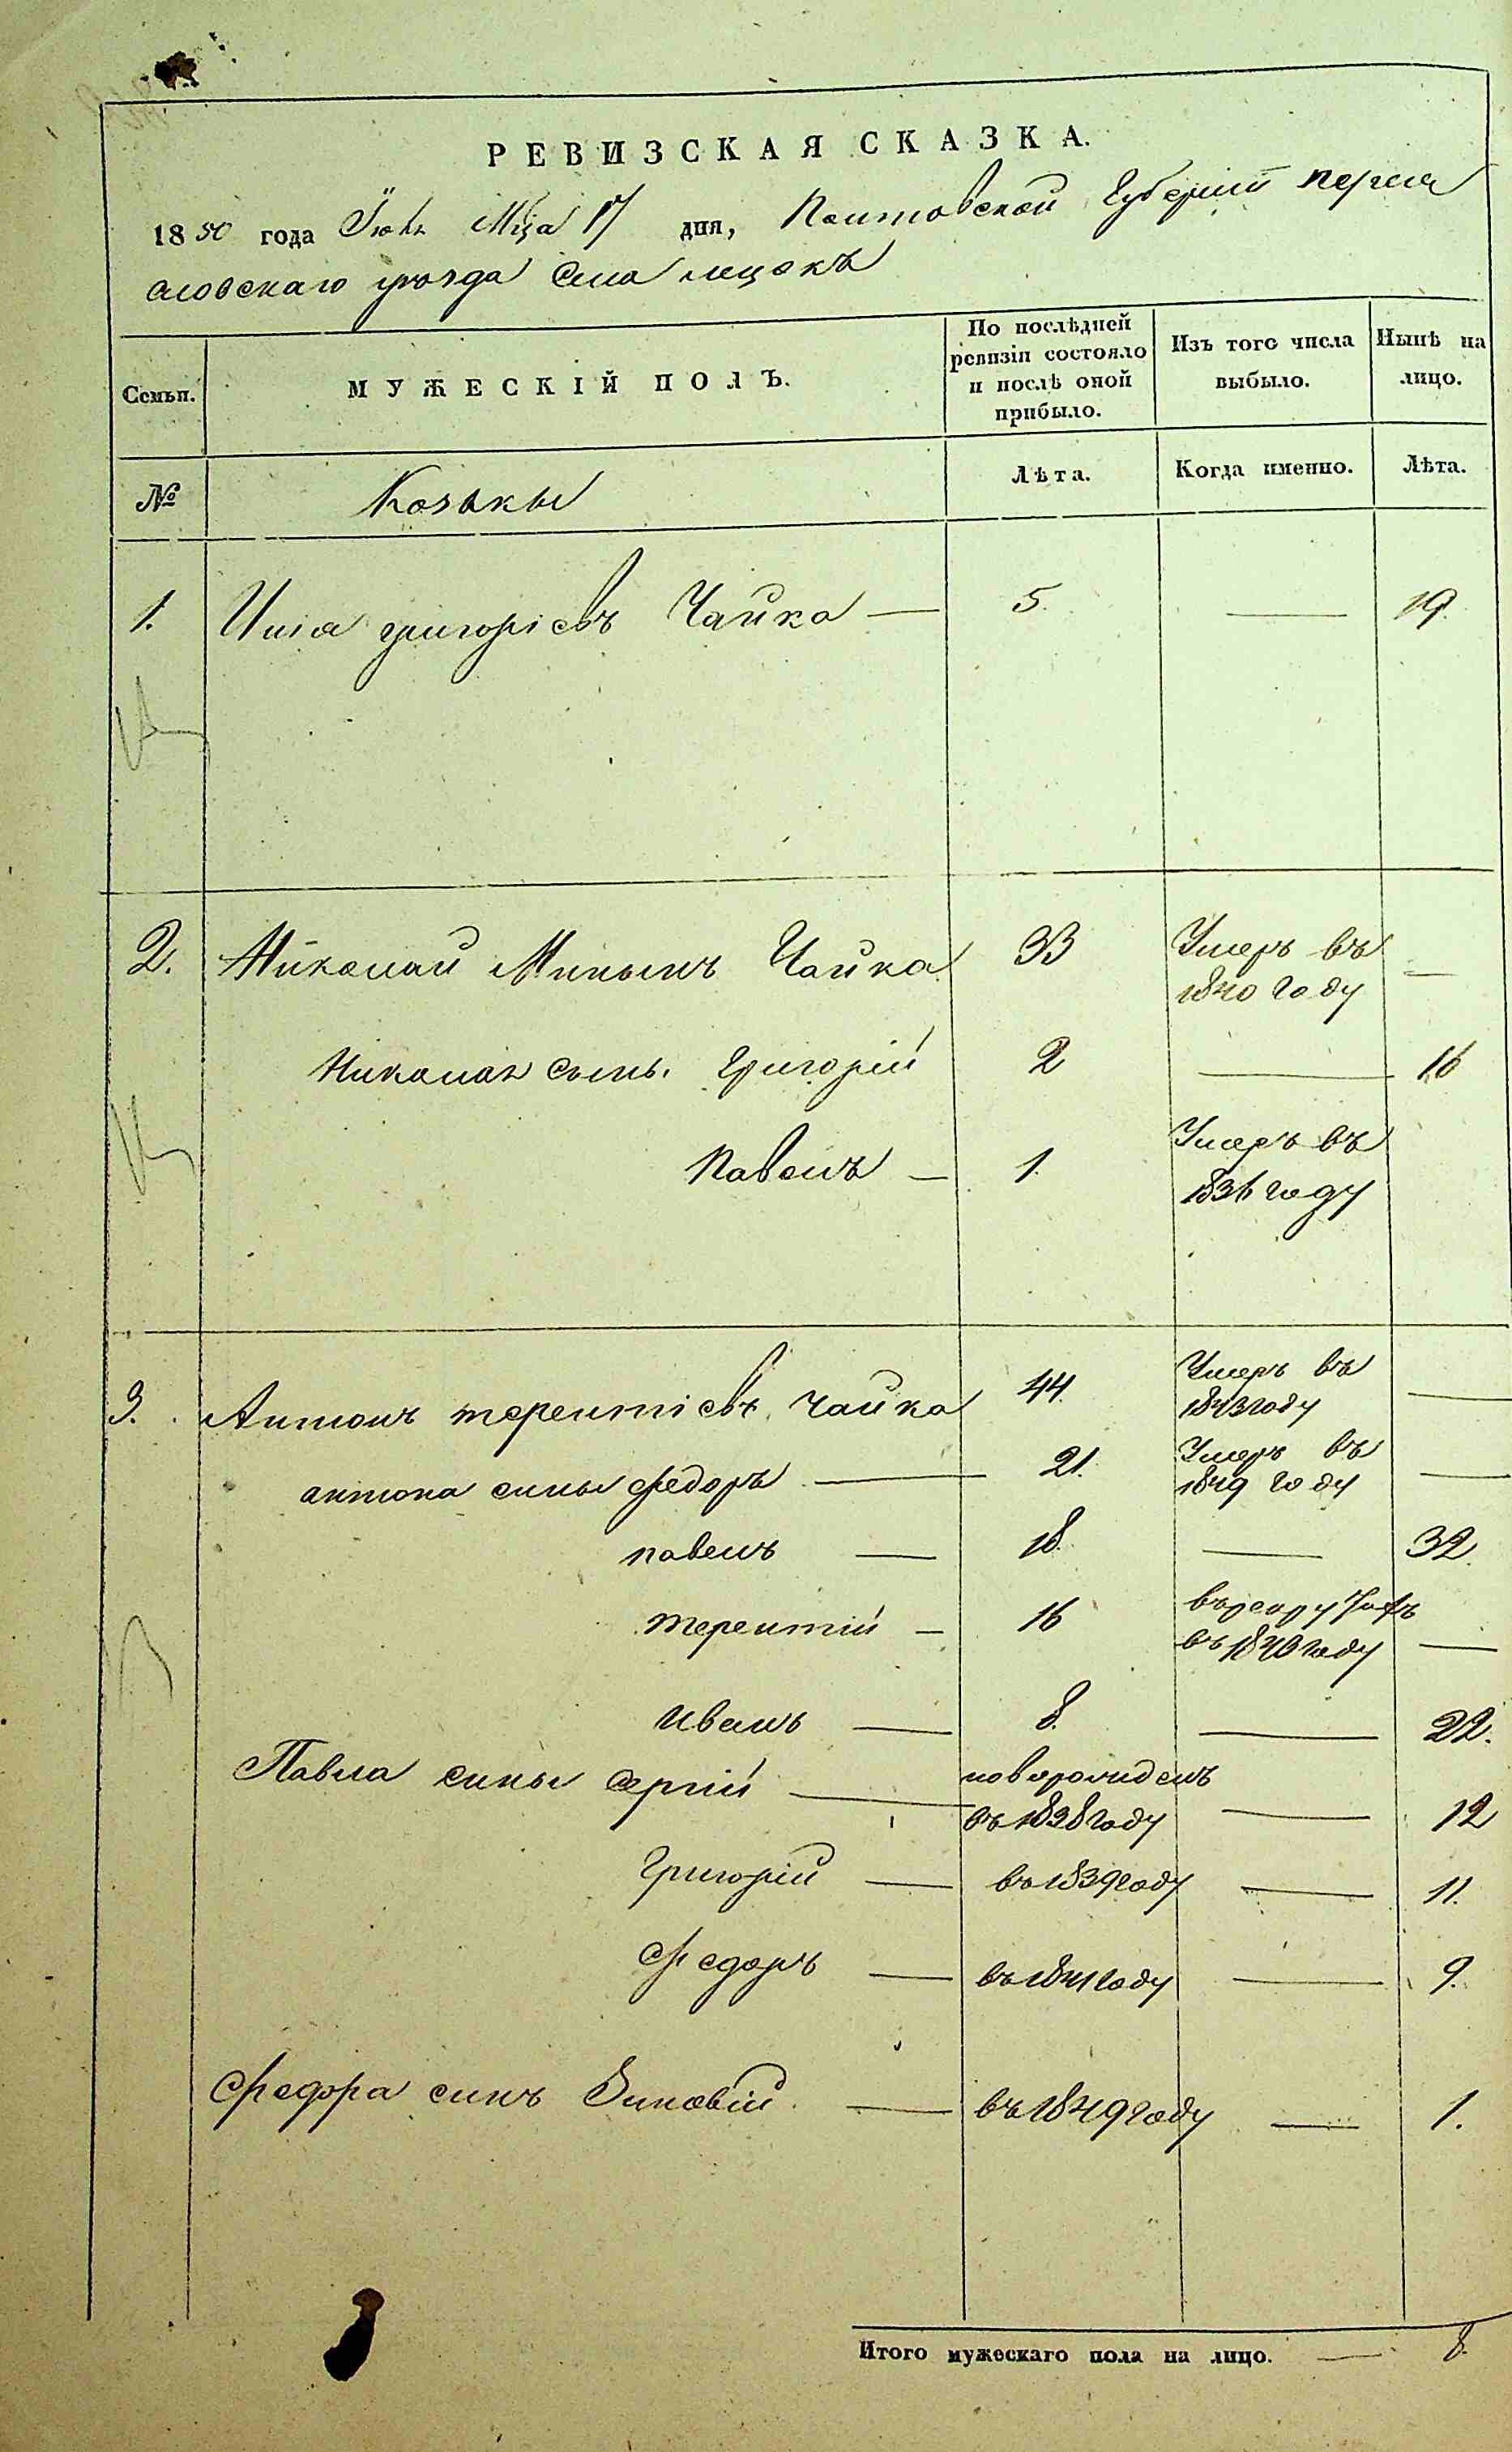 РЕВИЗСКАЯ СКАЗКА.
1850 года Мца 17 дня, Полтавской Губернiи Переяс
лавскаго уезда Села лецокъ
Семьи. МУЖЕСКІЙ ПОЛЪ. По послѣдней ревизіи состояло и послѣ оной прибыло. Изъ того числа выбыло. Нынѣ на лицо.
№ Козаки Лѣта. Когда именно. Лѣта.
1. Илiя григорiевъ Чайка — 5. — 19.
2. Николай Мининъ Чайка 33 Умеръ въ 1840 году —
Николая сынъ. Григорiй 2 — 16
Павелъ — 1. Умеръ въ 1836 году
3. Антонъ терентiевъ Чайка 44. Умеръ въ 1843 году —
антона сины федоръ — 21. Умеръ въ 1849 году —
павелъ — 18. — 32.
терентiй — 16 въ 1840 году —
иванъ — 8. — 22.
Павла сины Сергiй — новорожденъ въ 1838 году — 12
Григорiй — въ 1839 году — 11.
Федоръ — въ 1841 году — 9.
Федора синъ Зиновiй — въ 1849 году — 1.
Итого мужескаго пола на лицо. — 8.